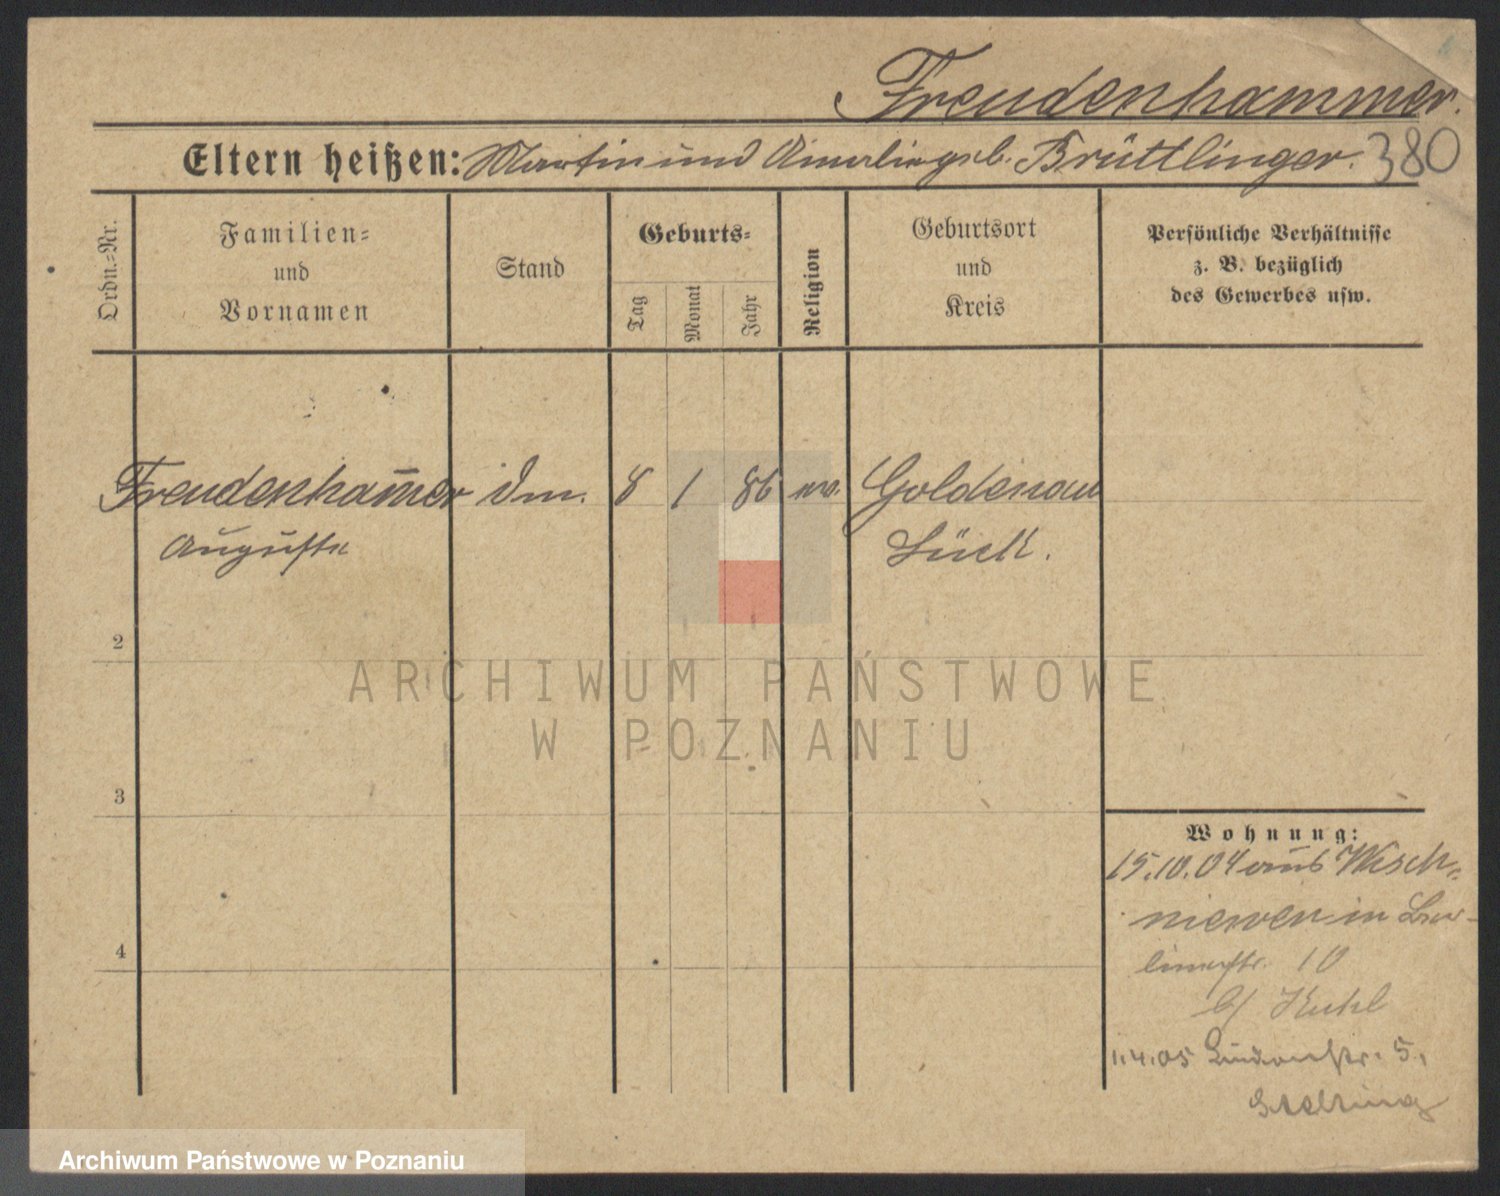 Freudenhammer.
Eltern heißen: Martin und Amalie geb. Brüttlinger. 380
Ordn.-Nr.
Familien- und Vornamen
Stand
Geburts-
Tag
Monat
Jahr
Religion
Geburtsort und Kreis
Persönliche Verhältnisse
z. B. bezüglich
des Gewerbes usw.
Freudenham̅er 8 1 86 ev. Goldenau
Auguste
2
3
4
Wohnung:
15.10.04 aus Wisch-
niewen in
10
b/ Kuhl
1.4.05 Lindenstr. 5,
ARCHIWUM PAŃSTWOWE
W POZNANIU
Archiwum Państwowe w Poznaniu